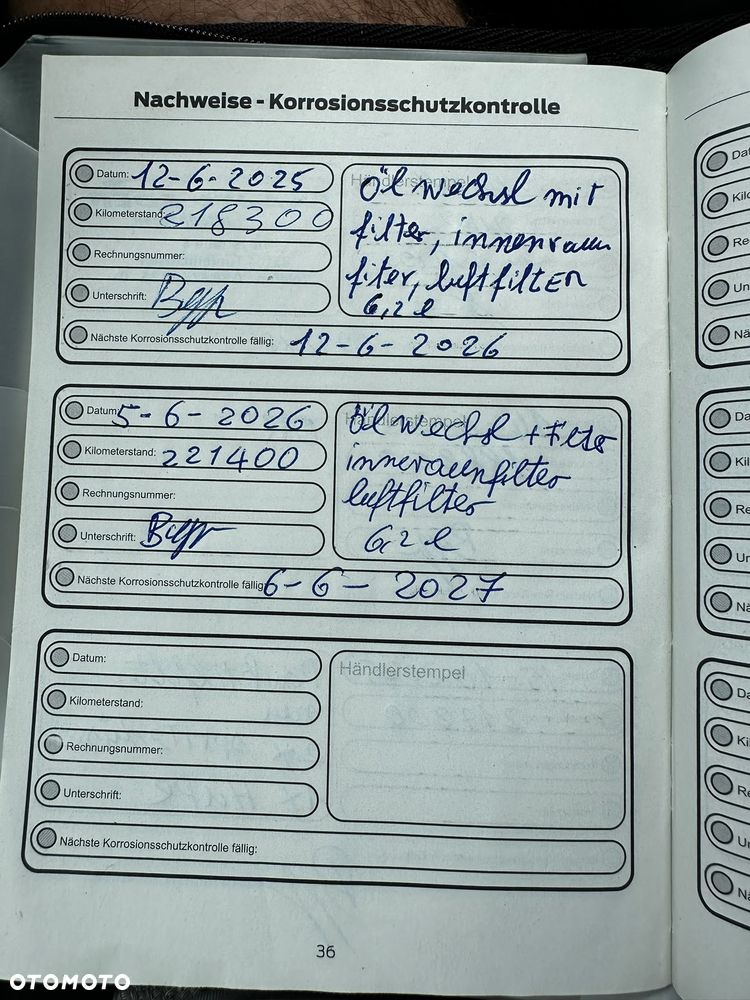 Nachweise - Korrosionsschutzkontrolle
Datum: 12-6-2025
Kilometerstand: 218300
Rechnungsnummer:
Unterschrift:
Händlerstempel
Öl wechsl mit
filter, innenraum
fiter, luftfilter
6,2 l
Nächste Korrosionsschutzkontrolle fällig: 12-6-2026
Datum: 5-6-2026
Kilometerstand: 221400
Rechnungsnummer:
Unterschrift:
Händlerstempel
Öl wechsl + Filter
innenraumfilter
luftfilter
6,2 l
Nächste Korrosionsschutzkontrolle fällig: 6-6-2027
Datum:
Kilometerstand:
Rechnungsnummer:
Unterschrift:
Händlerstempel
Nächste Korrosionsschutzkontrolle fällig:
36
Dat
Kilo
Re
Un
Nä
Da
Kil
Re
Un
Nä
Da
Ki
Re
Un
Nä
OTOMOTO